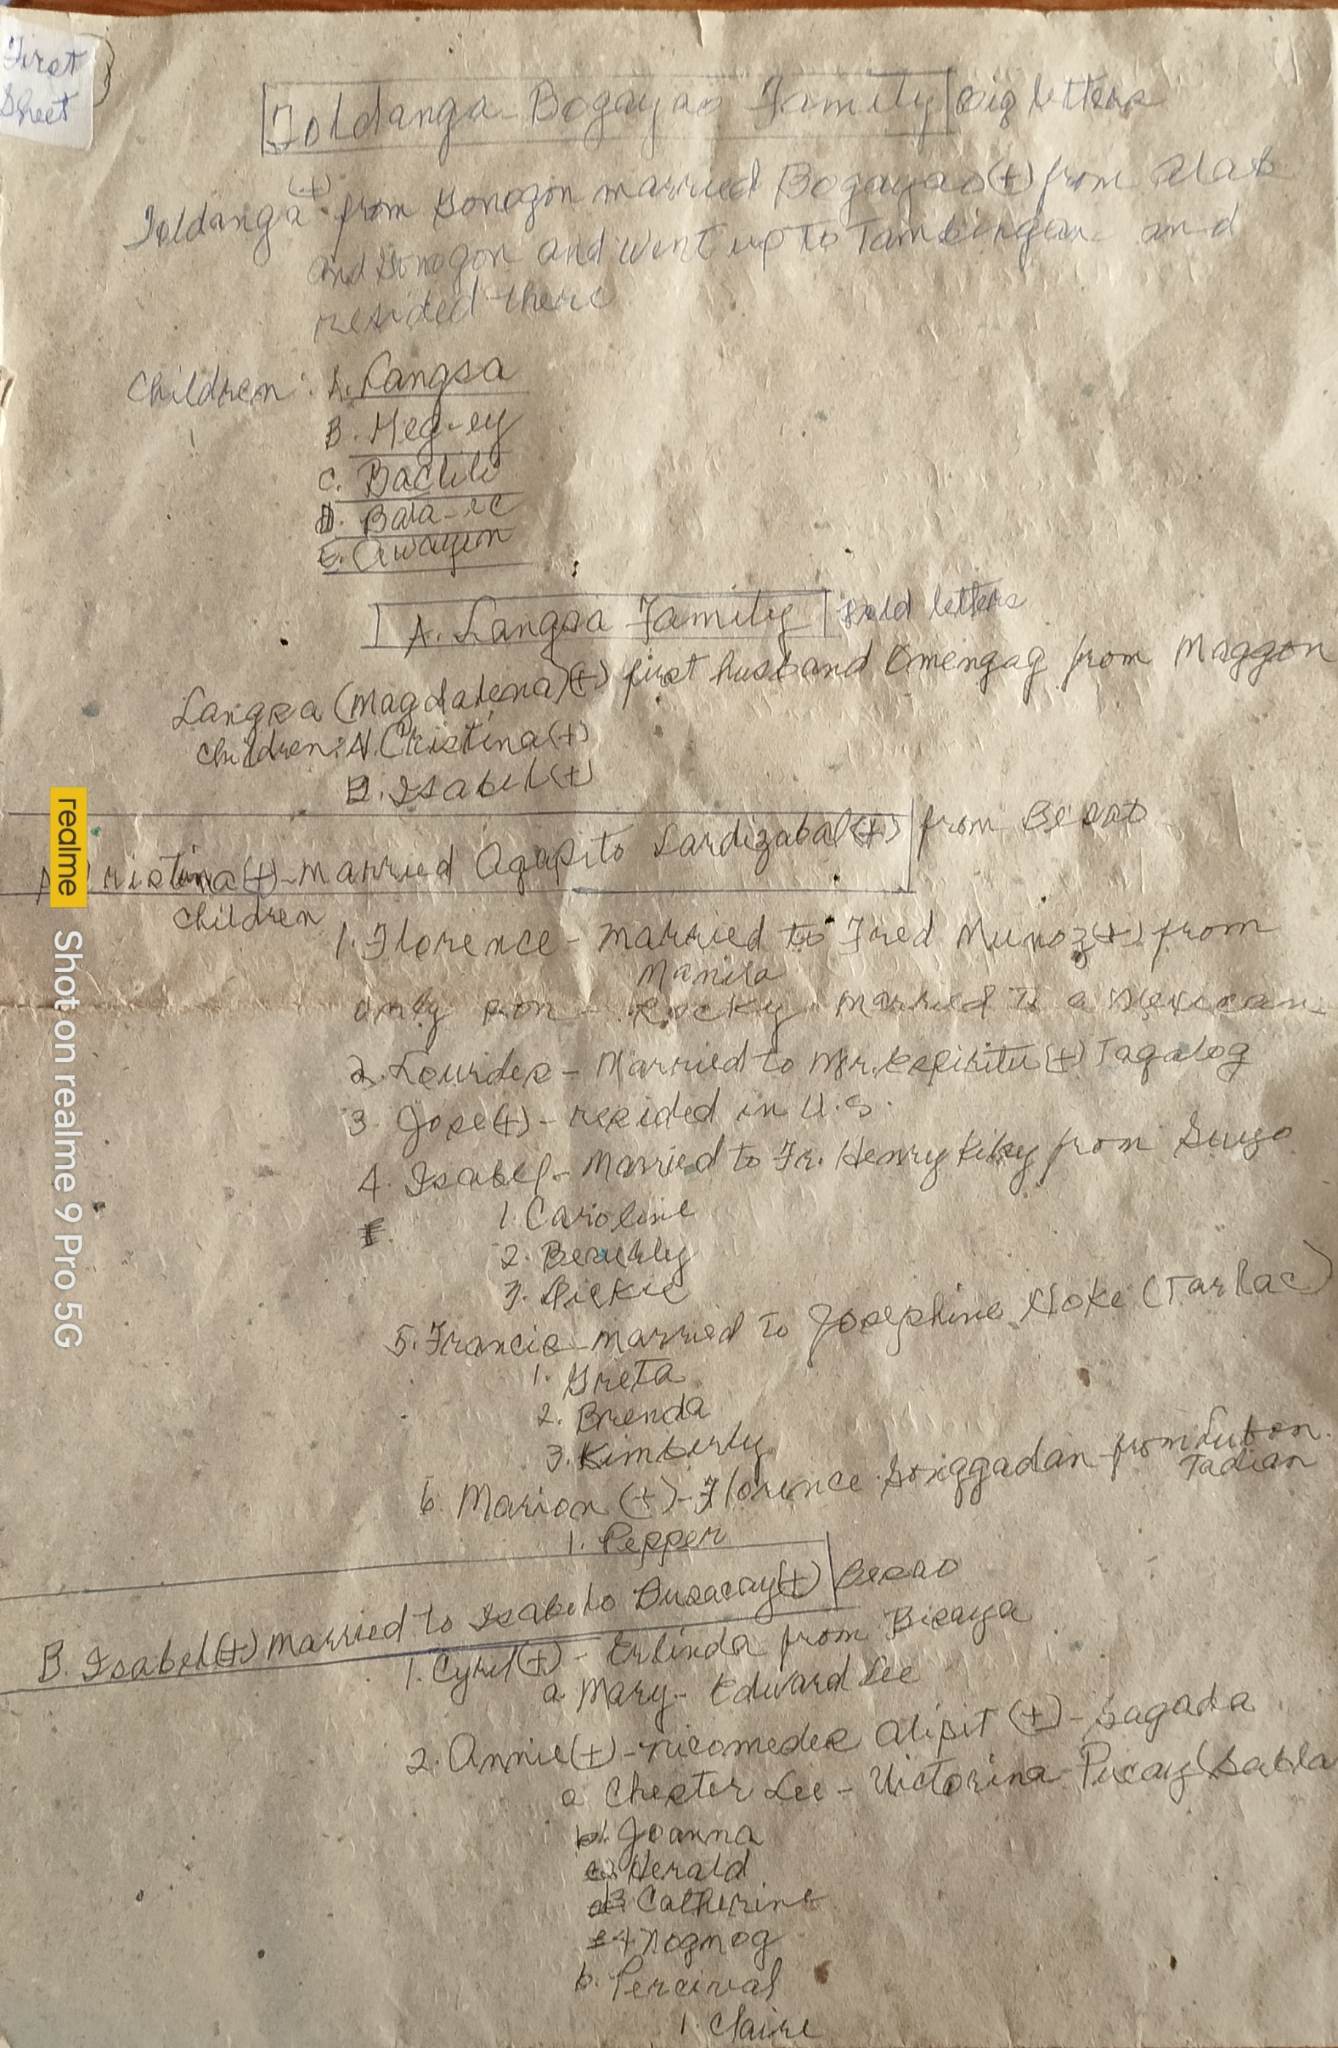 First
Sheet
Toldanga-Bogayao Family Big letters
Toldanga (+) from Gonogon married Bogayao (+) from Alab
and Gonogon and went up to Tambingan and
resided there
Children: A. Langsa
B. Meg-ey
C. Baclili
D. Bala-ic
E. Awayen
A. Langsa Family Bold letters
Langsa (Magdalena)(+) first husband Omengag from Maggon
Children: A. Cristina (+)
B. Isabel (+)
ristina (+) - married Agapito Lardizabal (+) from Besao
Children
1. Florence - married to Fred Munoz (+) from
Manila
only son - Rocky married to a Mexican
2. Lourdes - Married to Mr. Espiritu (+) Tagalog
3. Jose (+) - resided in U.S.
4. Isabel - Married to Fr. Henry Kiley from Suyo
1. Caroline
2. Beverly
3. Dickie
5. Francis - married to Josephine (Tarlac)
1. Greta
2. Brenda
3. Kimberly
6. Marion (+) - Florence from Lubon
Tadian
1. Pepper
B. Isabel (+) married to Isabelo Busacay (+) Besao
1. Cyril (+) - Erlinda from Bisaya
a. Mary - Edward Lee
2. Annie (+) - Nicomedes Alipit (+) - Sagada
a. Chester Lee - Victorina Pucay (Sabla
1. Joanna
2. Herald
3. Catherine
4. Nognog
b. Percival
1. Claire
realme Shot on realme 9 Pro 5G